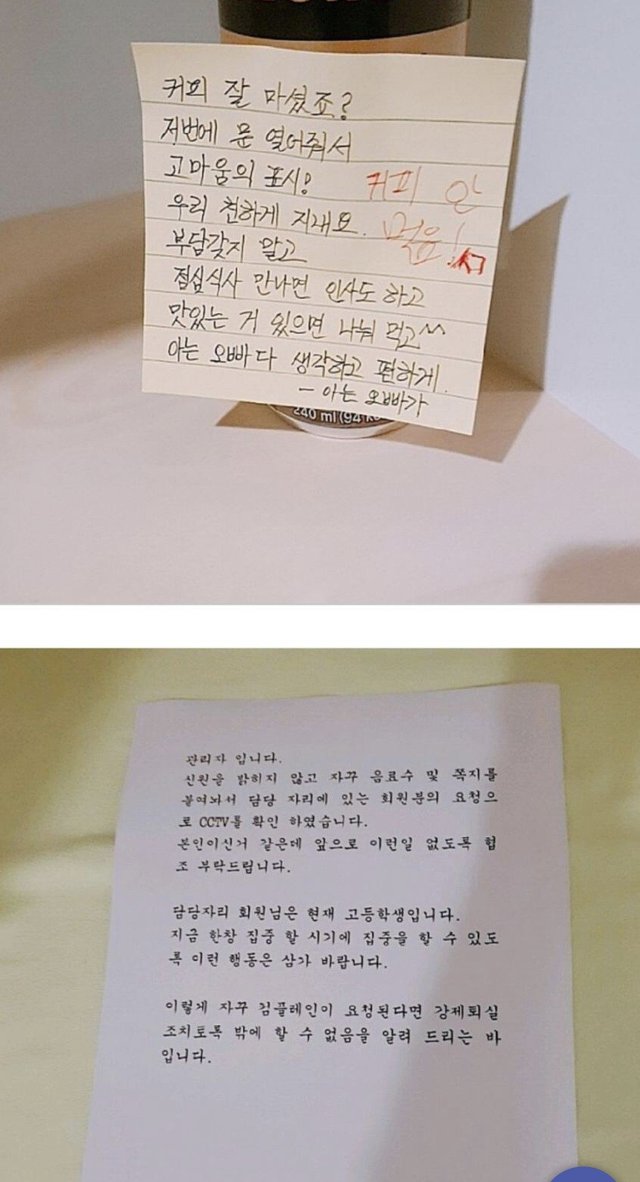 커피 잘 마셨죠?
저번에 문 열어줘서
고마움의 표시!
커피 안
우리 친하게 지내요.
먹음!
부담갖지 말고
점심식사 만나면 인사도 하고
맛있는 거 있으면 나눠 먹고^^
아는 오빠다 생각하고 편하게.
- 아는 오빠가
240 ml (94 k
관리자 입니다.
신원을 밝히지 않고 자꾸 음료수 및 쪽지를
붙여놔서 담당 자리에 있는 회원분의 요청으
로 CCTV를 확인 하였습니다.
본인이신거 같은데 앞으로 이런일 없도록 협
조 부탁드립니다.
담당자리 회원님은 현재 고등학생입니다.
지금 한창 집중 할 시기에 집중을 할 수 있도
록 이런 행동은 삼가 바랍니다.
이렇게 자꾸 컴플레인이 요청된다면 강제퇴실
조치토록 밖에 할 수 없음을 알려 드리는 바
입니다.